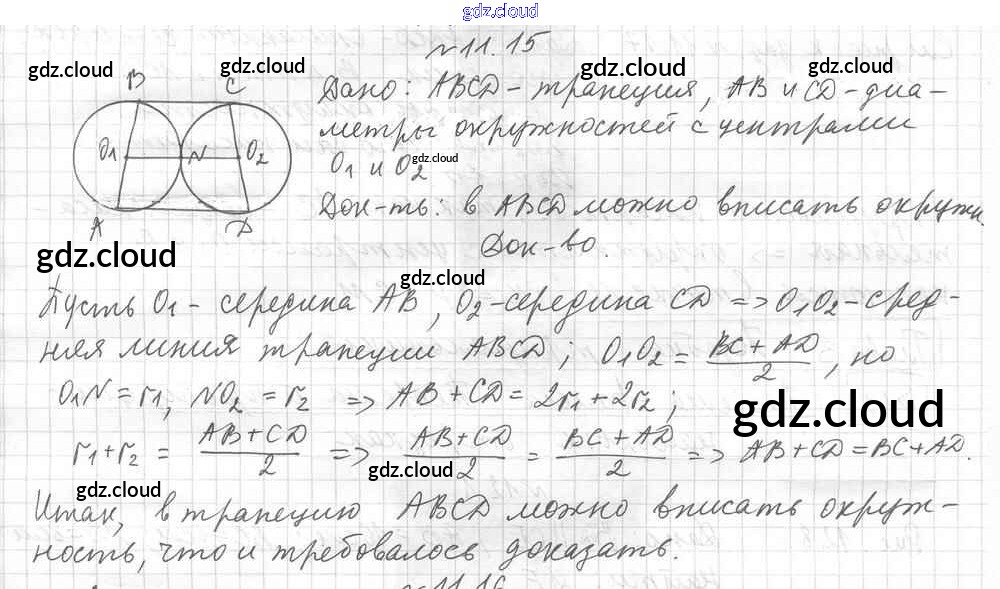 gdz.cloud
№11.15
gdz.cloud gdz.cloud gdz.cloud gdz.cloud
B C
Дано: ABCD - трапеция, AB и CD - диа-
метры окружностей с центрами
O1 N O2
O1 и O2
gdz.cloud
Док-ть: в ABCD можно вписать окружн.
A D
Док-во.
gdz.cloud gdz.cloud
Пусть O1 - середина AB, O2 - середина CD => O1O2 - сред-
няя линия трапеции ABCD; O1O2 = (BC + AD)/2, но
O1N = r1, NO2 = r2 => AB + CD = 2r1 + 2r2;
gdz.cloud
r1 + r2 = (AB + CD)/2 => (AB + CD)/2 = (BC + AD)/2 => AB + CD = BC + AD.
gdz.cloud gdz.cloud
Итак, в трапецию ABCD можно вписать окруж-
ность, что и требовалось доказать.
№11.16